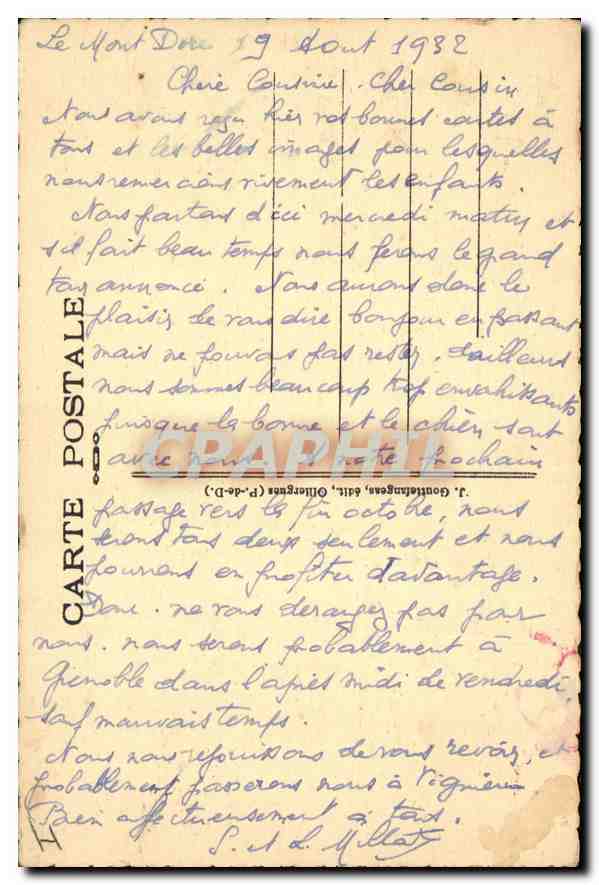 Le Mont Dore 9 Aout 1932
Chère Cousine. Cher Cousin
Nous avons reçu hier vos bonnes cartes à
tous et les belles images pour lesquelles
nous remercions vivement les enfants.
Nous partons d'ici mercredi matin et
s'il fait beau temps nous ferons le grand
tour annoncé. Nous aurons donc le
plaisir de vous dire bonjour en passant
mais ne pouvons pas rester. d'ailleurs
nous sommes beaucoup trop envahissants
puisque la bonne et le chien sont
avec nous. A notre prochain
passage vers la fin octobre, nous
serons tous deux seulement et nous
pourrons en profiter davantage.
Donc. ne vous derangez pas pour
nous. nous serons probablement à
Grenoble dans l'après midi de vendredi,
sauf mauvais temps.
Nous nous rejouissons de vous revoir, et
probablement passerons nous à
Bien affectueusement à tous.
S. et L.
CARTE POSTALE
J. Gouttefangeas, édit., Olliergues (P.-de-D.)
CPAPHIL